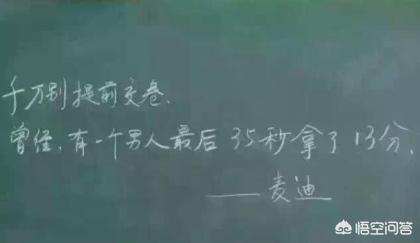 千万别提前交卷.
曾经,有一个男人最后35秒拿了13分.
——麦迪
悟空问答